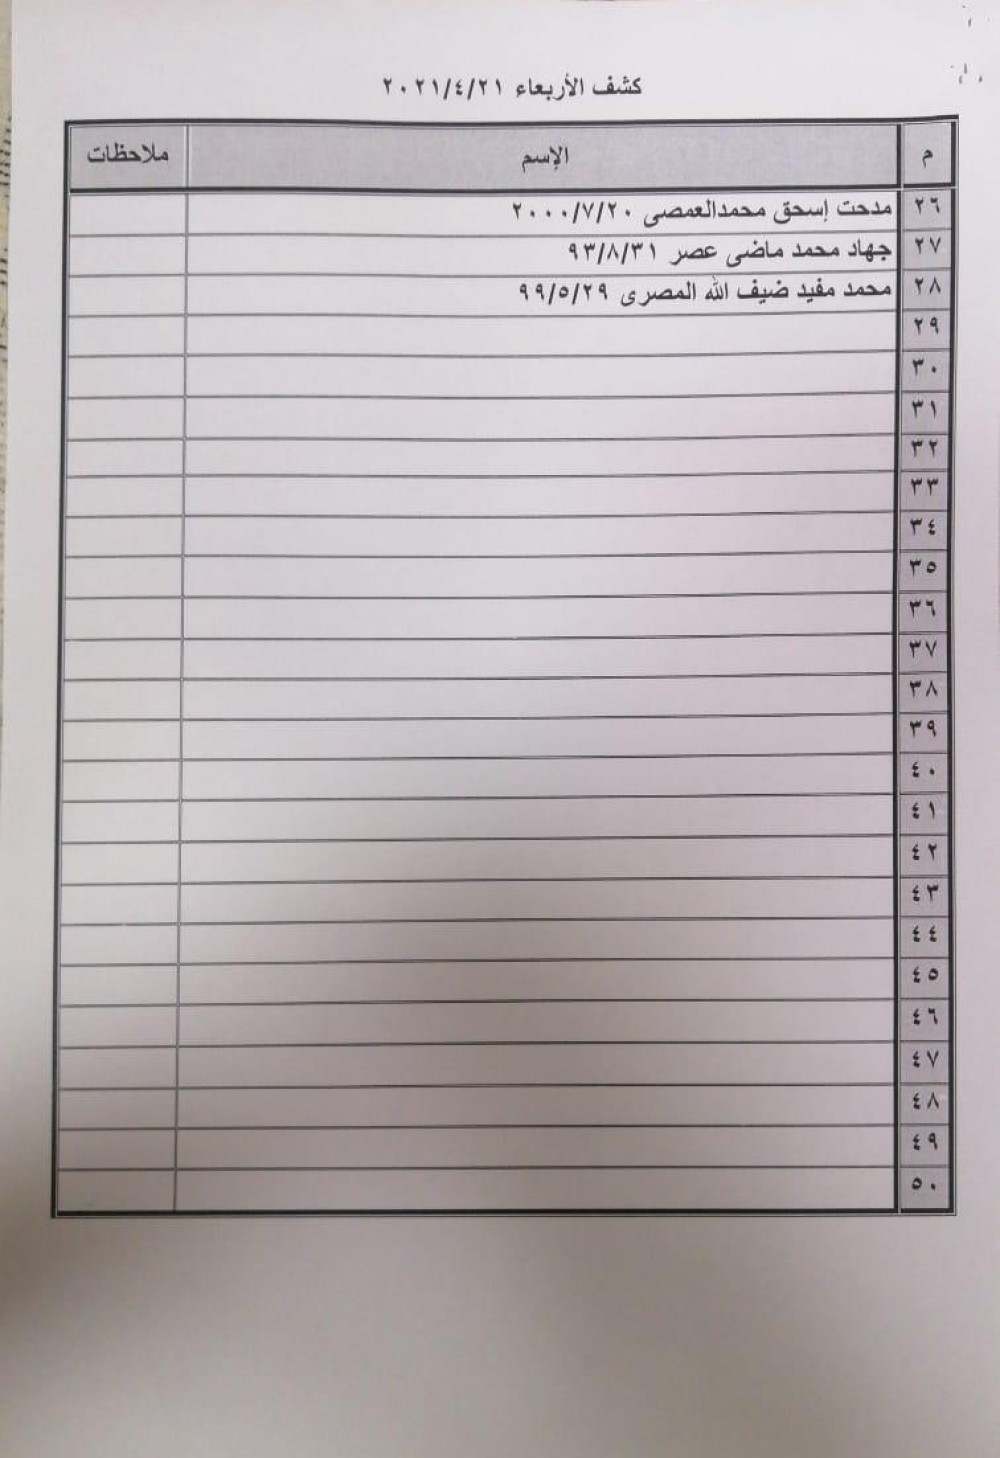 كشف الأربعاء ٢٠٢١/٤/٢١
م الإسم ملاحظات
٢٦ مدحت إسحق محمدالعمصى ٢٠٠٠/٧/٢٠
٢٧ جهاد محمد ماضى عصر ٩٣/٨/٣١
٢٨ محمد مفيد ضيف الله المصرى ٩٩/٥/٢٩
٢٩
٣٠
٣١
٣٢
٣٣
٣٤
٣٥
٣٦
٣٧
٣٨
٣٩
٤٠
٤١
٤٢
٤٣
٤٤
٤٥
٤٦
٤٧
٤٨
٤٩
٥٠